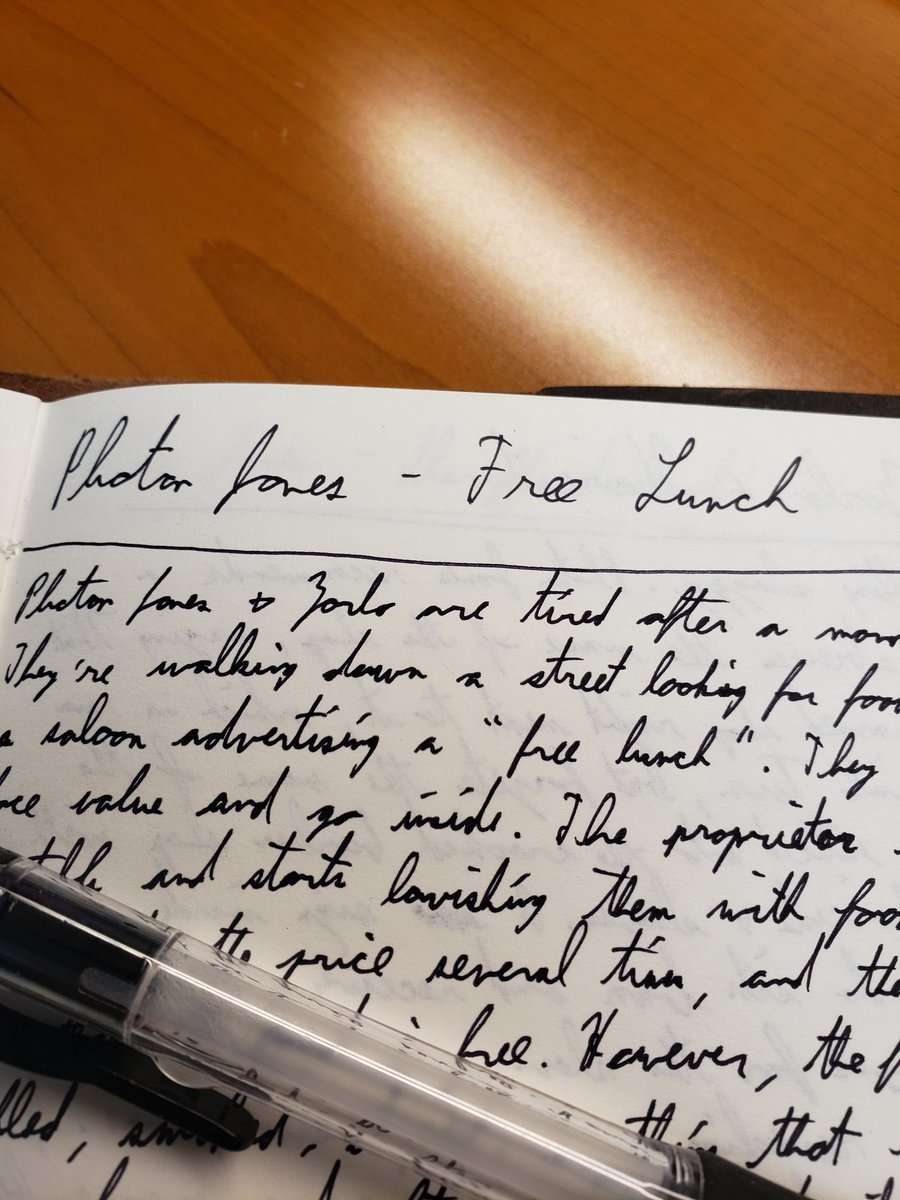 Photon Jones - Free Lunch
Photon Jones & Zorlo are tired after a
They're walking down a street looking for
saloon advertising a "free lunch". They
value and go inside. The proprietor
and starts lavishing them with
the price several times, and
free. However, the
that